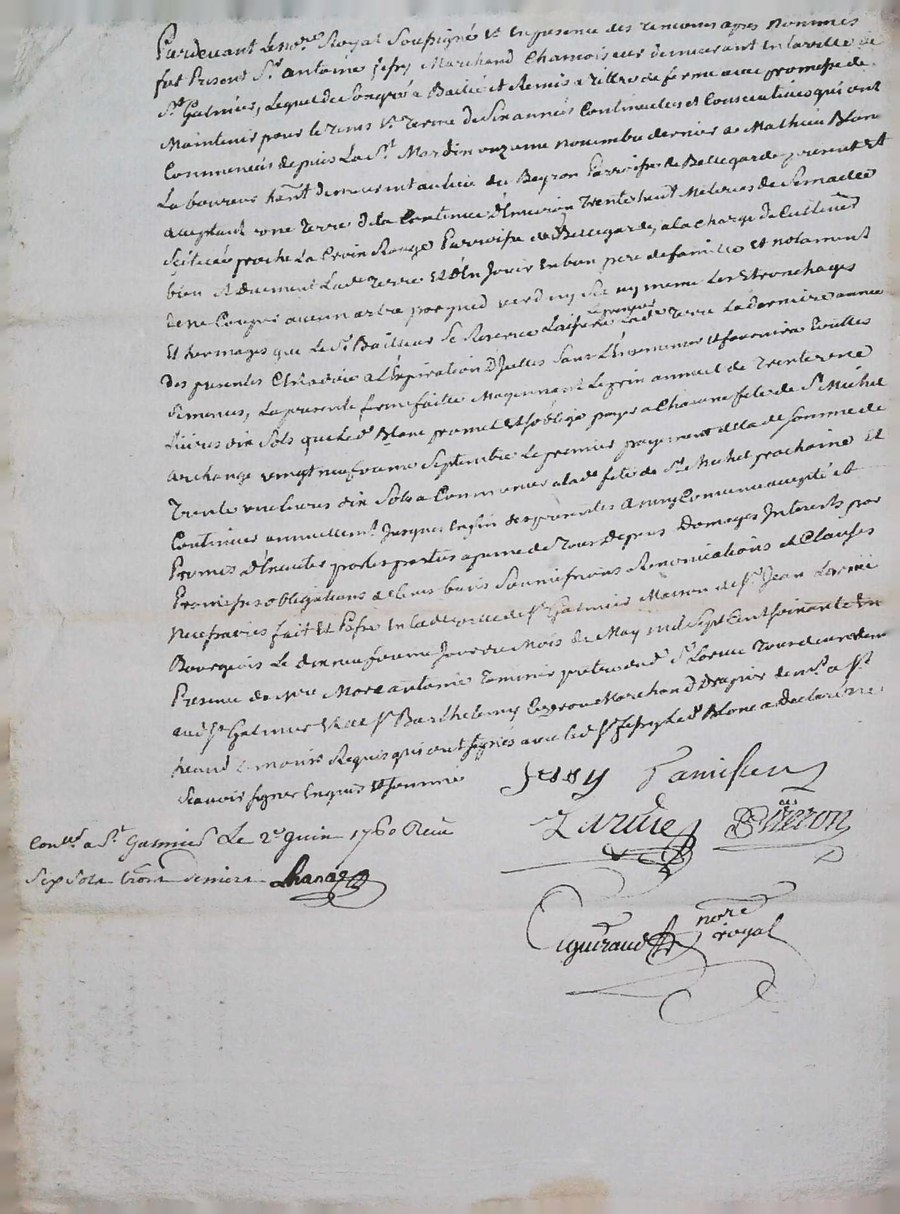 Pardevant le nore Royal Soussigné et en presence des temoins apres nommés
fut Present Sr. antoine Jessy Marchand Chamoiseur demeurant en la ville de
St Galmier, lequel de son gré a Baillé et Remis a tittre de ferme avec promesse de
Maintenir pour le tems et terme de Six années Continuelles et Consecutives qui ont
Commencés depuis la St. Martin onzieme novembre dernier a Mathieu Blanc
Laboureur hant. demeurant au lieu du Parroisse de Bellegarde present et
acceptant une terre de la Contenue d'Environ trente huit Meterées de Semaille
Scituée proche La Croix Rouge Parroisse de Bellegarde, a la charge de Cultiver
bien et duement Lade. terre et d'En Jouir En bon pere de famille et notament
de ne Couper aucun arbre par pied verd ny Sec ny meme les Etronchages
Et herbages que le Sr. Bailleur Se Reserve Laissera le preneur lade. terre La derniere année
des presentes a l'Expiration d'Jcelles Sans l'Ensemencer et fournira
La presente ferme faitte Moyennant Le prix annuel de trente une
Livres dix Sols que led. Blanc promet et s'oblige payer a Chacune fete de St. Michel
archange vingt neuf Septembre le premier payement de la de. somme de
trente une livres dix Sols a Commencer a lade. fete de St. Michel prochaine Et
Continuer annuellemt. Jusques En fin des presentes accepté et
Promis d'Executer par les parties a peine de tous depens Domages Interests par
Promesses obligations de leurs biens Soumissions Renonciations et Clauses
necessaires fait Et Passé En lade. ville de St. Galmier Maison de Sr. Jean
Bourgeois le dix neuf jour du Mois de May mil Sept Cent Soixante En
Presence de Mre Marc antoine pretre et de Sr.
aud. St. Galmier Et de Sr. Barthelemy Marchand Drapier de a St.
temoins Requis qui ont Signés avec led. Sr. Jessy led. Blanc a declaré ne
Scavoir Signer Enquis et Sommé
Jessy
nore royal
Conllé a St. Galmier Le 2e Juin 1760 Reçu
Sept Sols